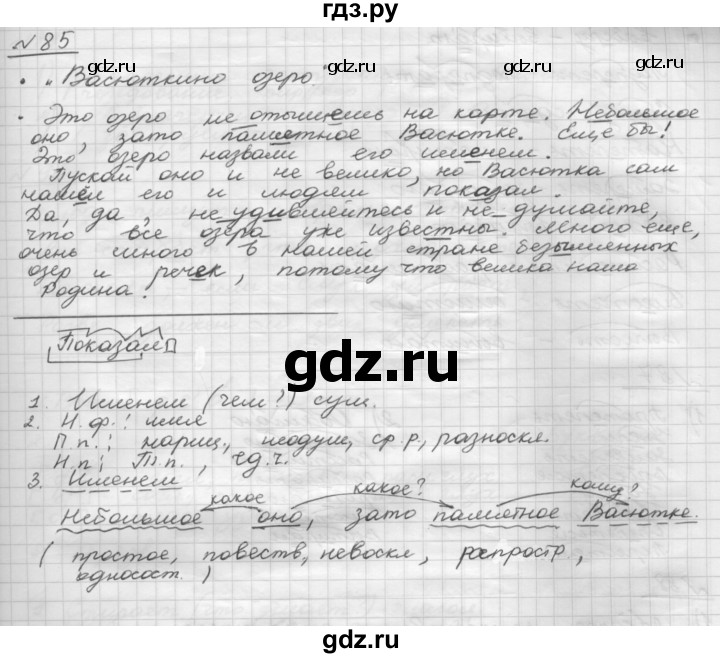 гдз.ру
№85
gdz.ru gdz.ru gdz.ru
• „Васюткино озеро."
• Это озеро не отыщешь на карте. Небольшое
оно, зато памятное Васютке. Еще бы!
Это озеро назвали его именем.
Пускай оно и не велико, но Васютка сам
нашёл его и людям показал.
Да, да, не удивляйтесь и не думайте,
что все озера уже известны. Много еще,
очень много в нашей стране безымянных
озер и речек, потому что велика наша
Родина!
gdz.ru
Показал
1. Именем (чем?) сущ.
2. Н.ф.: имя
П.п.: нариц., неодуш., ср.р., разноскл.
Н.п: Т.п., ед.ч.
3. Именем
gdz.ru gdz.ru gdz.ru
какое какое? кому?
Небольшое оно, зато памятное Васютке.
(простое, повеств, невоскл, распростр,
односост.)
gdz.ru